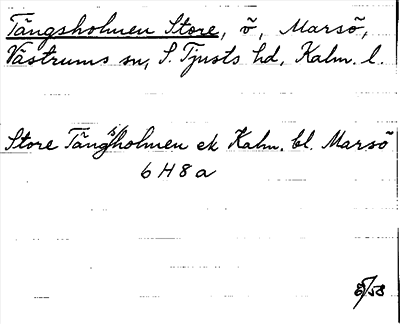 Tängsholmen Store, ö, Marsö,
Västrums sn, S. Tjusts hd, Kalm. l.
Store Tängsholmen ek Kalm. bl. Marsö
6 H 8 a
/58